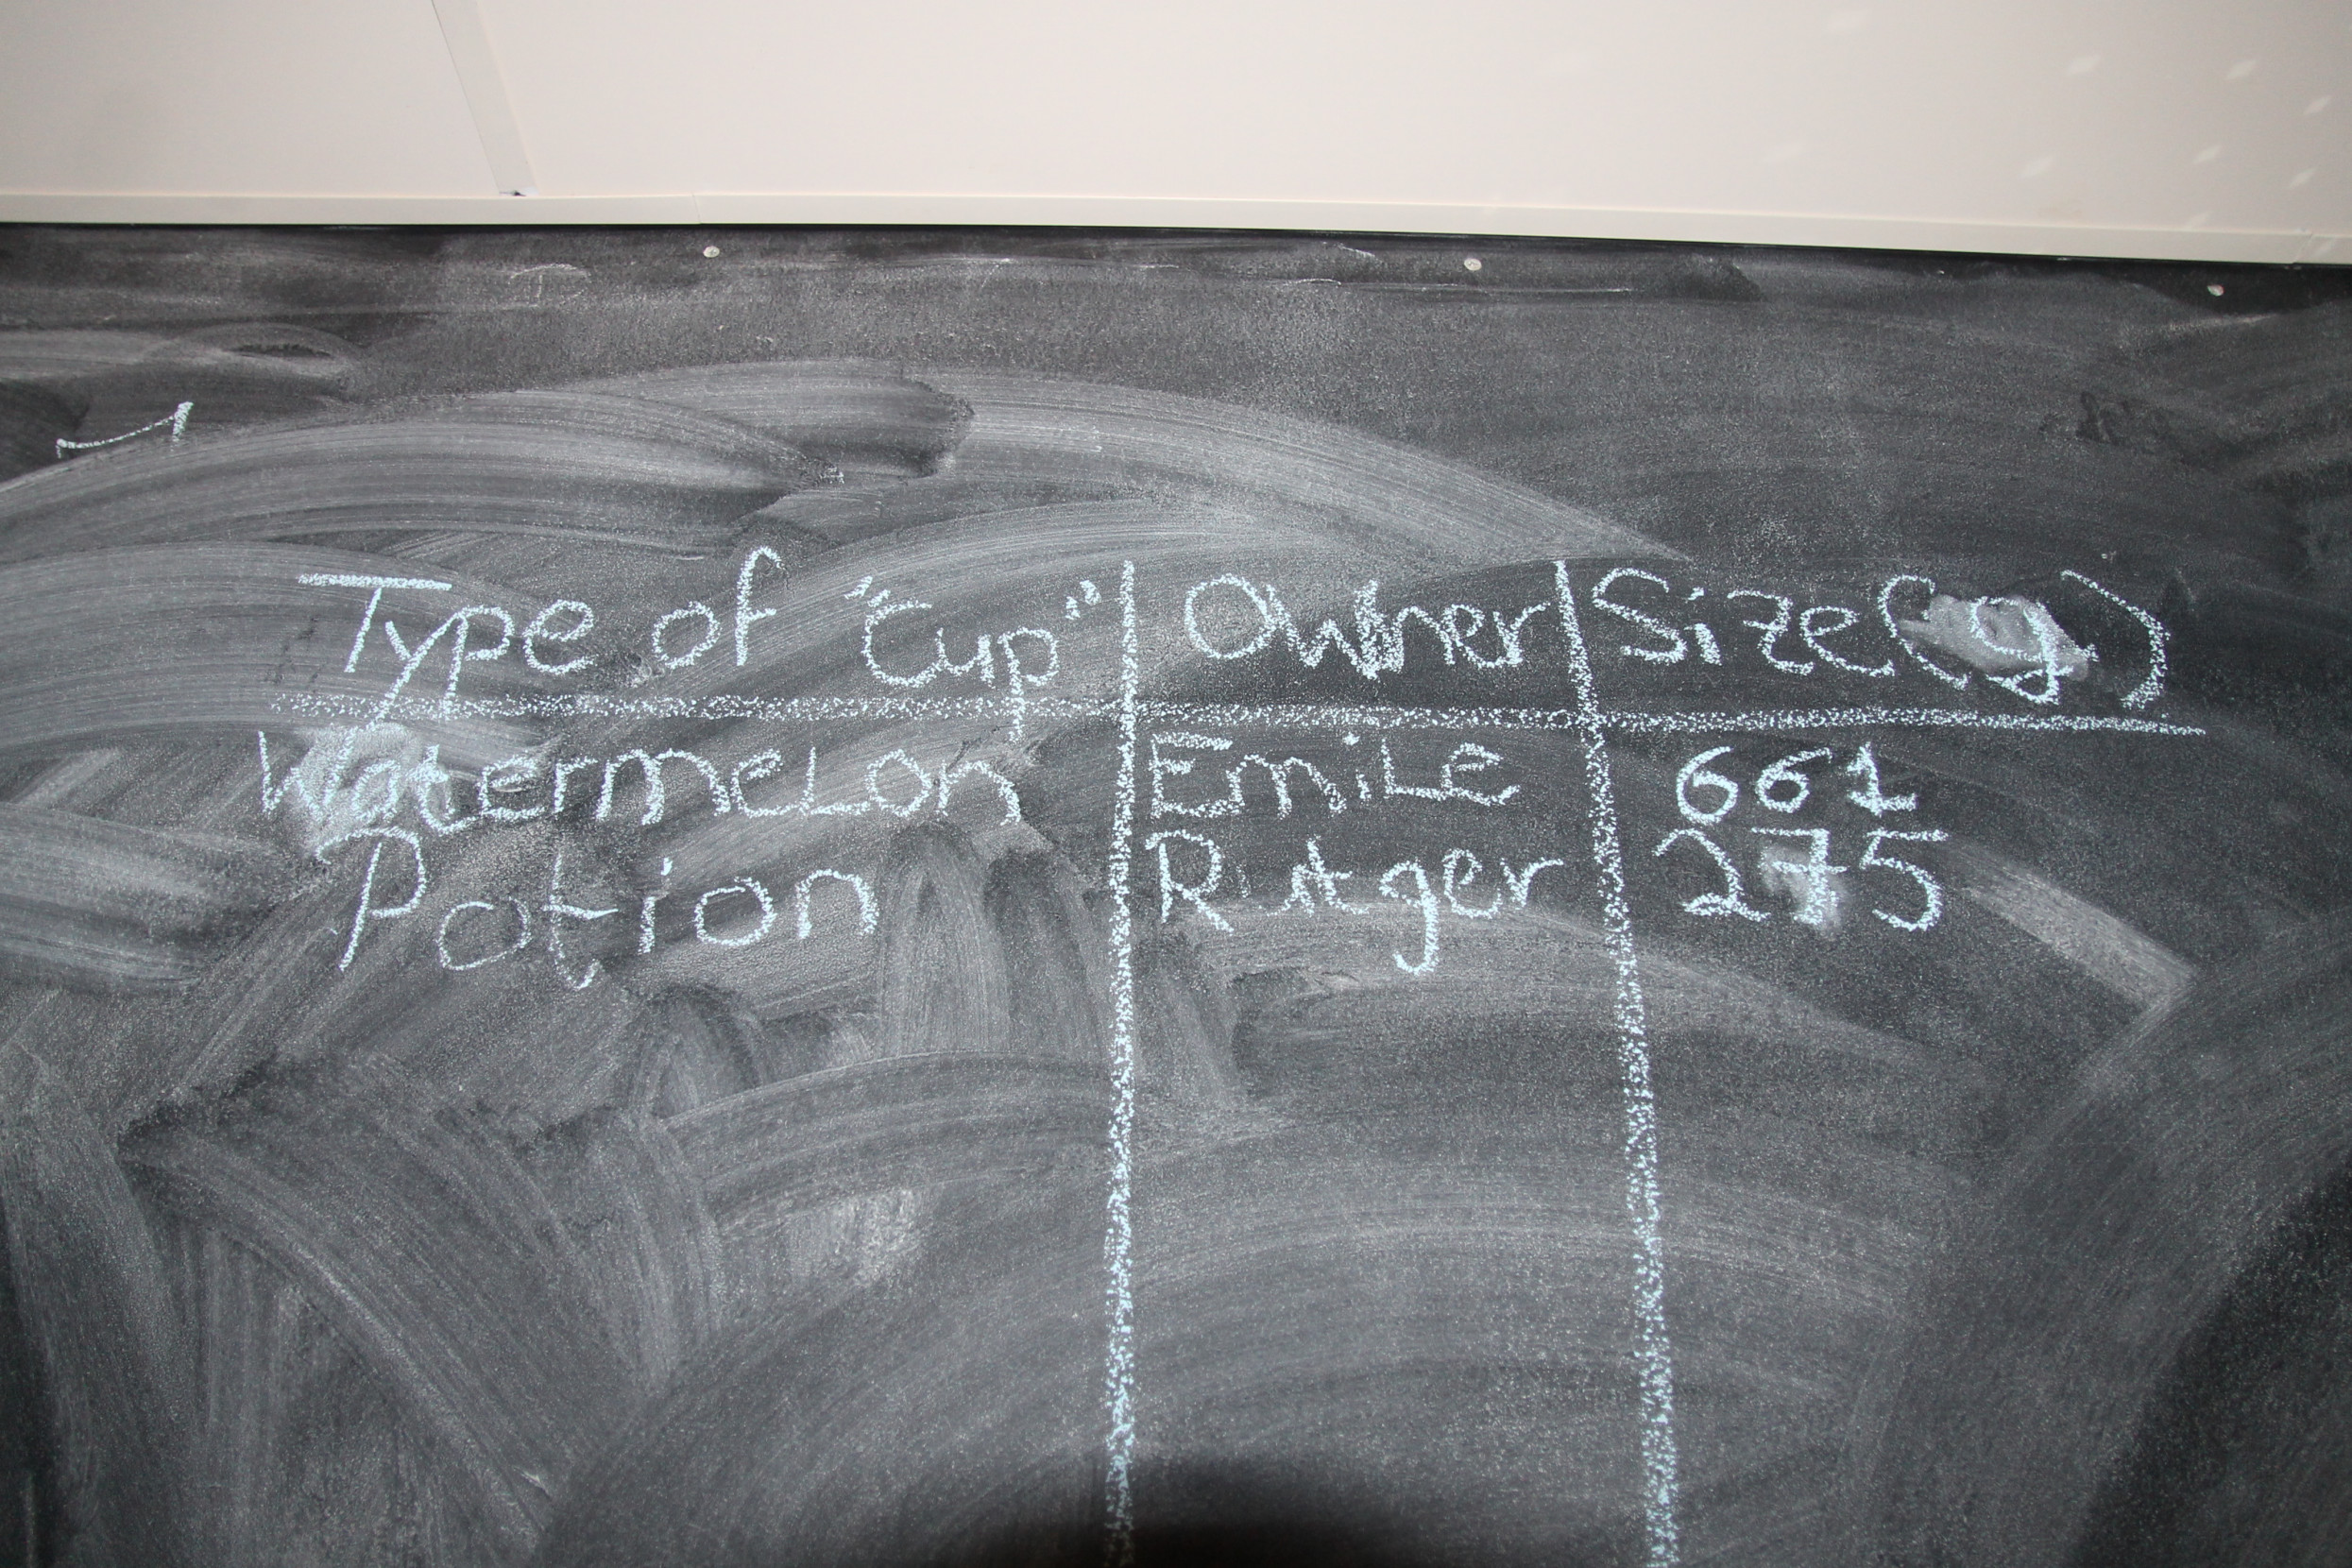 Type of "Cup" Owner Size (g)
Watermelon Emile 661
Potion Rutger 275